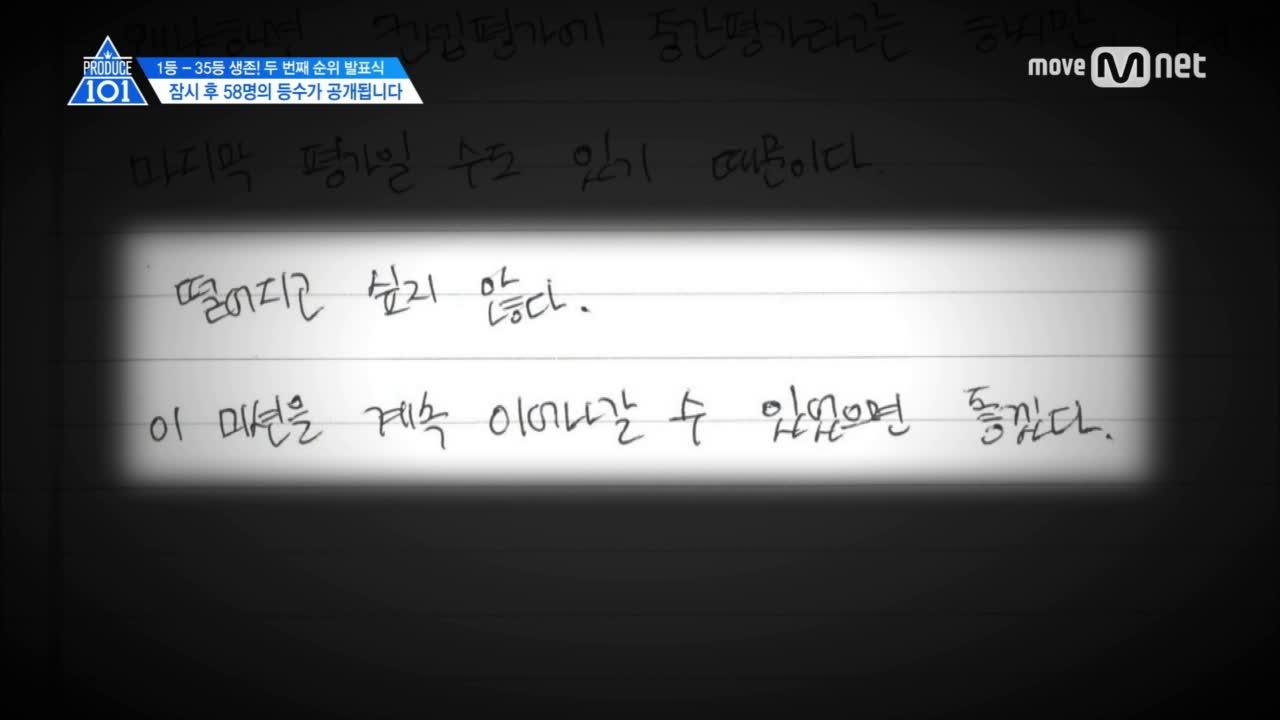 PRODUCE 101
1등 – 35등 생존! 두 번째 순위 발표식
잠시 후 58명의 등수가 공개됩니다
move Mnet
왜냐하면 중간평가라고는 하지만,
마지막 평가일 수도 있기 때문이다.
떨어지고 싶지 않다.
이 계속 이어나갈 수 있었으면 좋겠다.